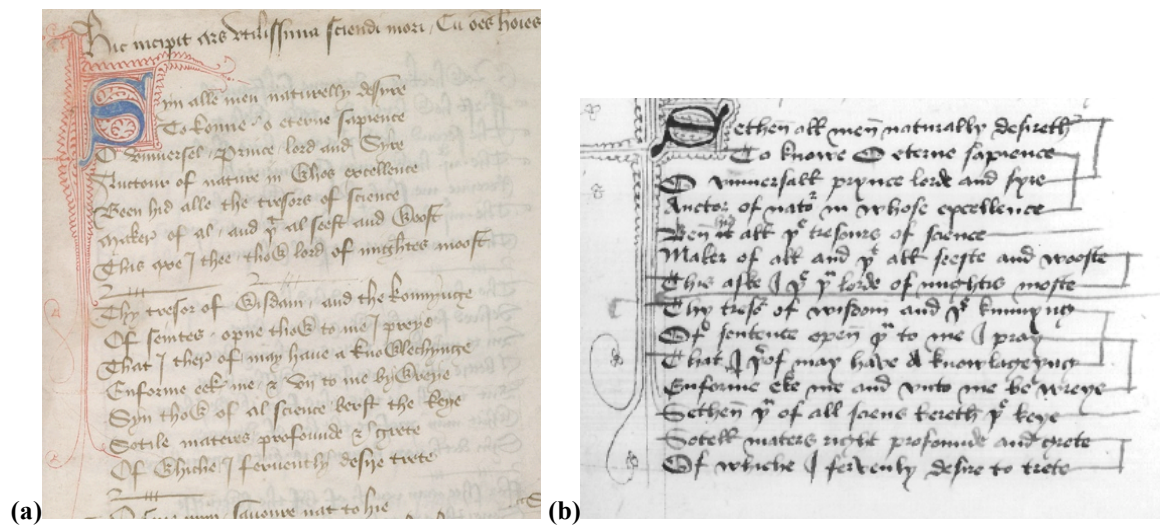 Hic incipit ars vtilissima sciendi mori. Cū oēs hoīes
Syn alle men naturelly desyre
To konne o eterne sapience
O vniuersel Prince lord and Syre
Auctour of nature in Whos excellence
Been hid alle the tresors of science
Maker of al and þt al seest and Woost
This axe I thee thow lord of mightes moost
Thy tresor of Wisdam and the konnynge
Of seintes opne thow to me I preye
That I ther of may haue a knoWlechynge
Enforme eek me & vn to me byWreye
Syn thow of al science berst the keye
Sotile materes profounde & grete
Of Whiche I feruently desire trete
sauoure nat to hie
(a)
Sethen all men naturally desireth
To knowe O eterne sapience
O vniuersall prynce lorde and syre
Auctor of natr in whose excellence
Ben hid all þe tresours of science
Maker of all and þt all seeste and wooste
This aske I þe þu lorde of mightis moste
Thy tresr of wisdom and þe kunnyng
Of sentence open þu to me I pray
That I þrof may haue A knowlageyng
Enforme eke me and vnto me be wreye
Sethen þu of all sciens bereth þe keye
Sotell maters right profounde and grete
Of whiche I feruenly desire to trete
(b)